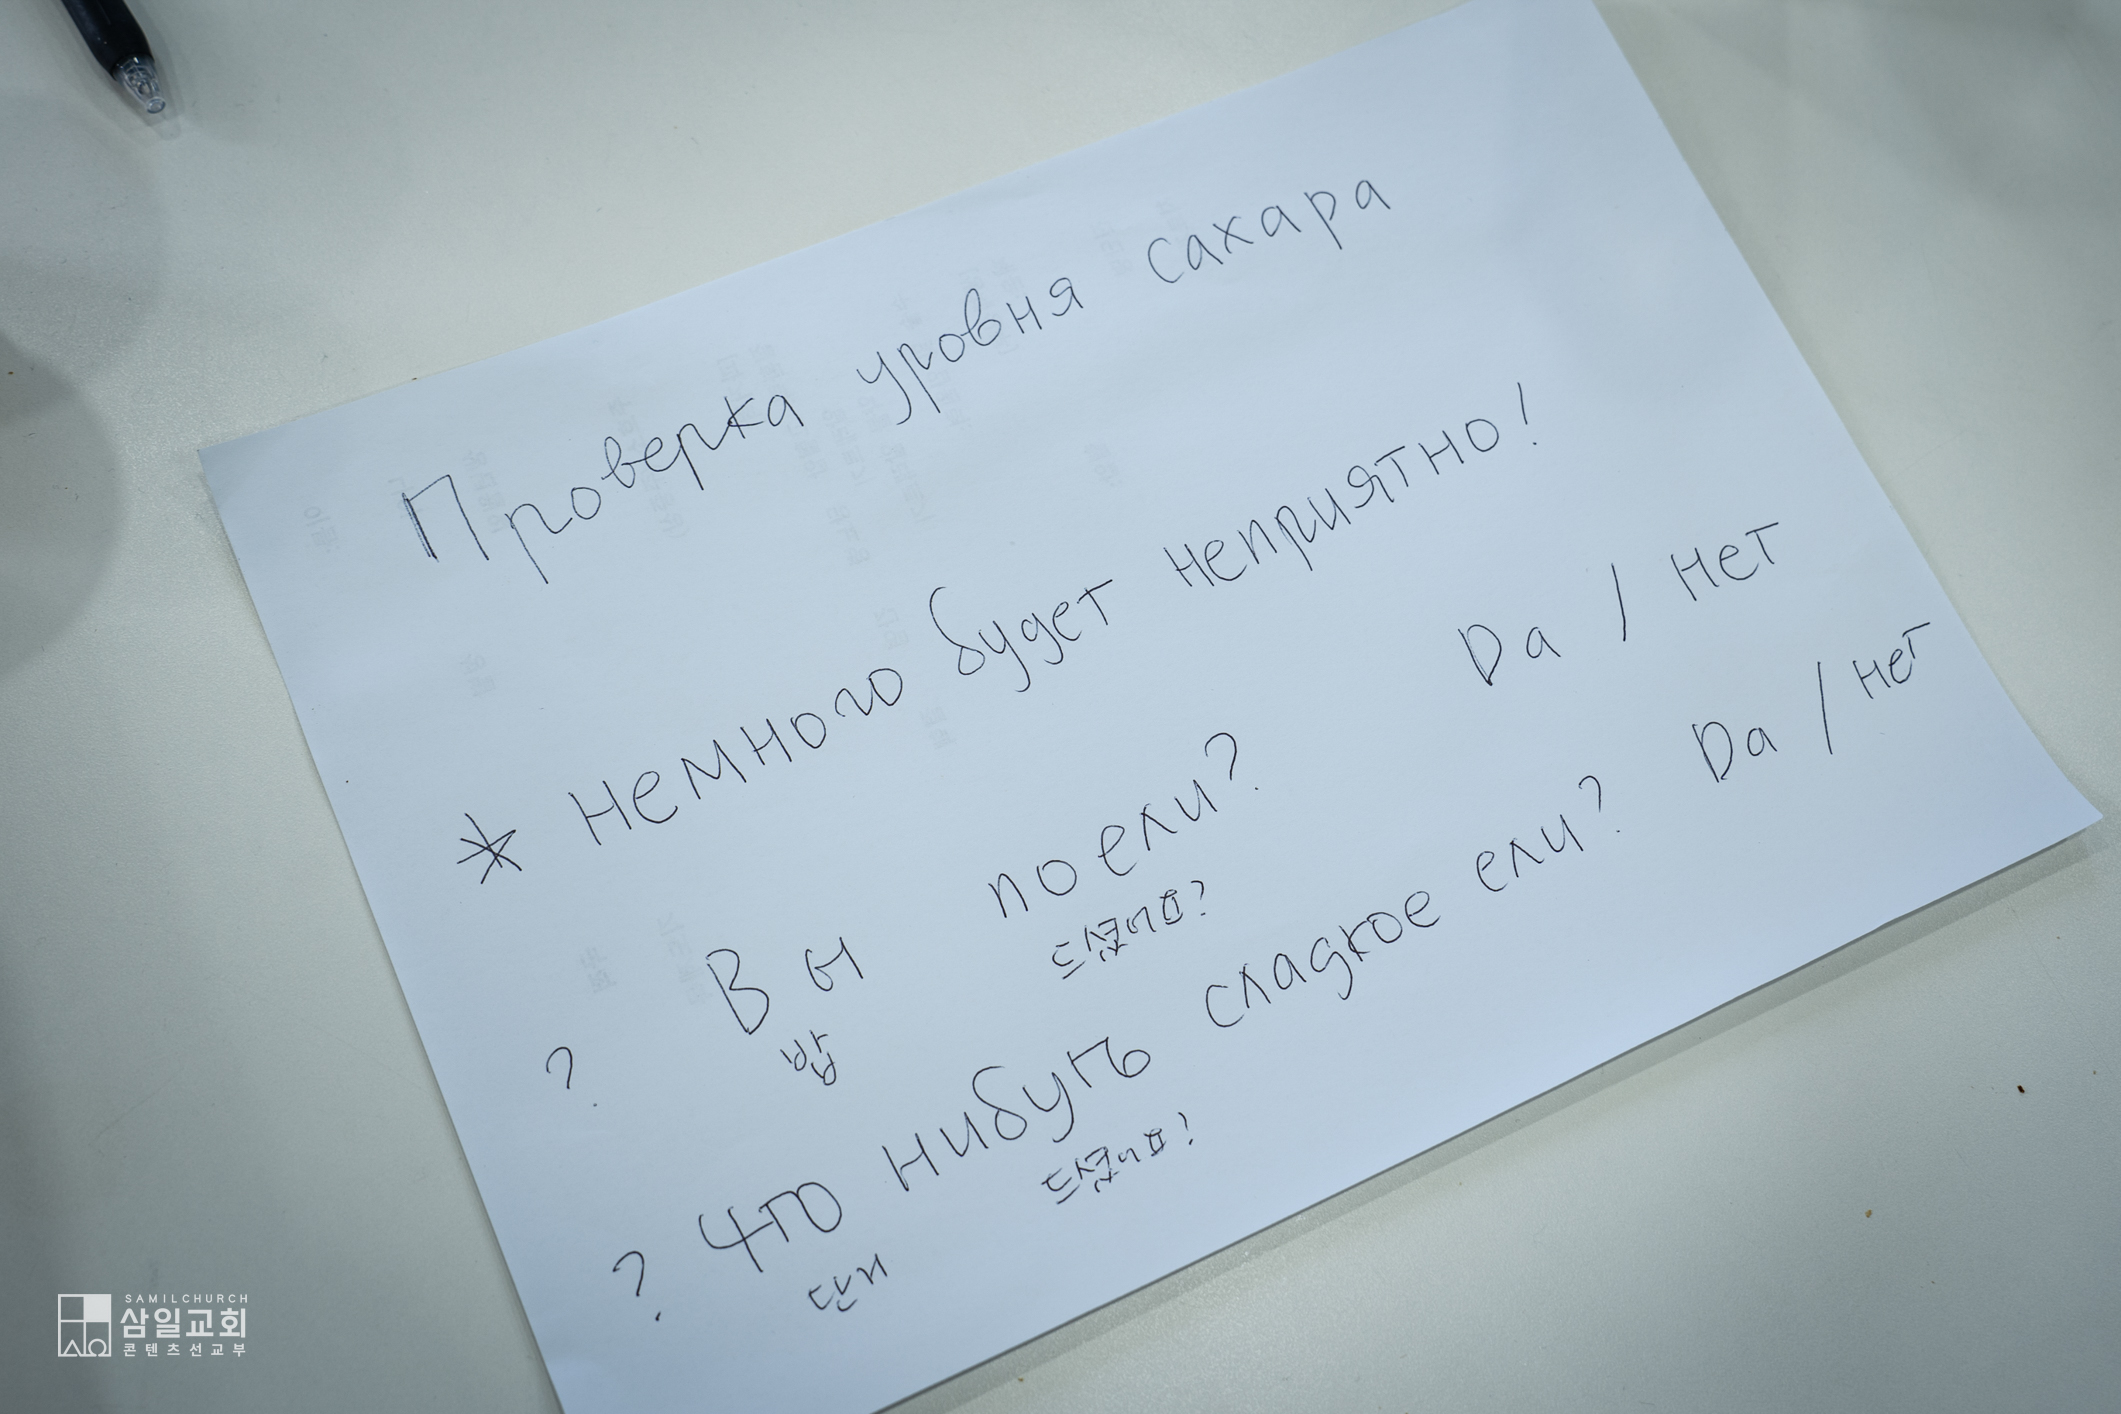 Проверка уровня сахара
* Немного будет неприятно!
? Вы поели? Да / нет
밥 드셨어요?
? Что нибуть сладкое ели? Да / нет
단거 드셨어요?
SAMILCHURCH
삼일교회
콘텐츠선교부